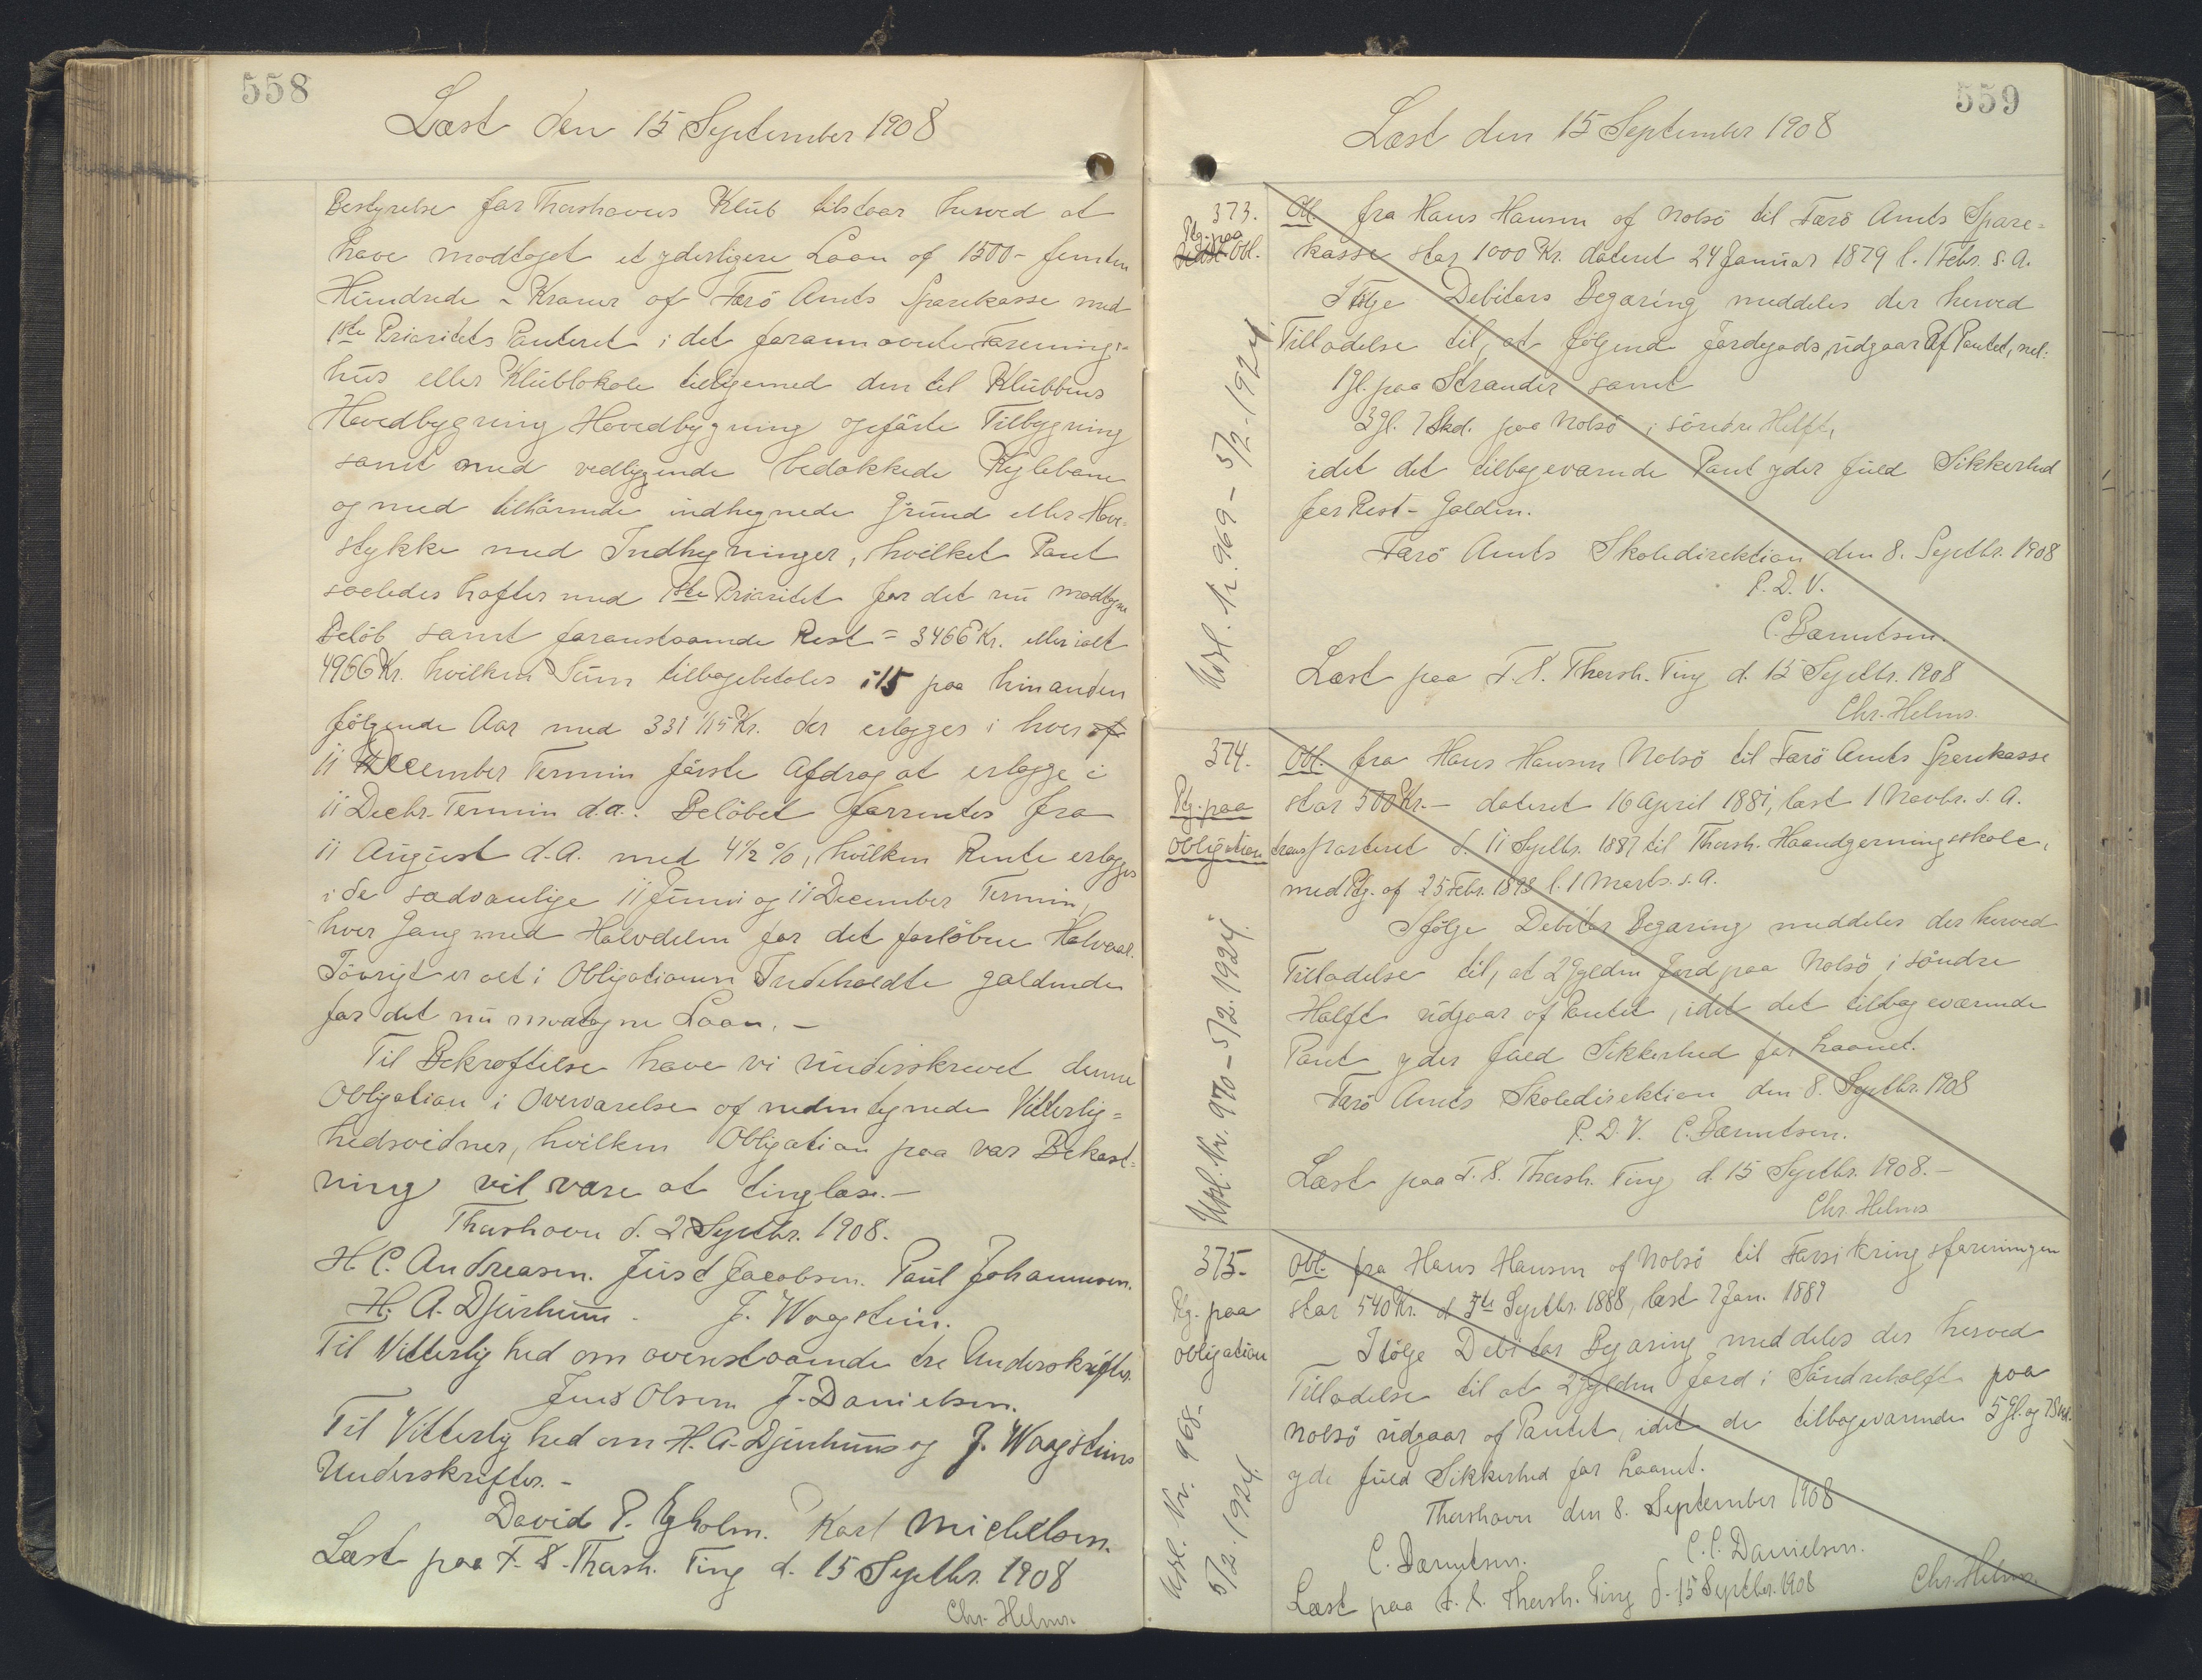 558
Læst den 15 September 1908
Bestyrelse for Thorshavns Klub tilstaar herved at
have modtaget et yderligere Laan af 1500 - femten
Hundrede - Kroner af Færö Amts Sparekasse med
1ste Prioritets Panteret i det forannævnte Forenings-
hus eller Klublokale tilligemed den til Klubbens
Hovedbygning Hovedbygning opförte Tilbygning
samt med vedliggende bedækkede Keglebane
og med tilhörende indhegnede Grund eller Have-
stykke med Indhegninger, hvilket Pant
saaledes hæfter med 1ste Prioritet for det nu modtagne
Belöb samt foranstaaende Rest = 3466 Kr. eller ialt
4966 Kr. hvilken Sum tilbagebetales i 15 paa hinanden
fölgende Aar med 331 1/15 Kr. der erlægges i hver af
11 December Termin förste Afdrag at erlægge i
11 Decbr. Termin d.a. Belöbet forrentes fra
11 August d.A. med 4½ %, hvilken Rente erlægges
i de sædvanlige 11 Juni og 11 December Termin,
hver Gang med Halvdelen for det forlöbne Halvaar.
Iövrigt er alt i Obligationen Indeholdte gældende
for det nu modtagne Laan. -
Til Bekræftelse have vi underskrevet denne
Obligation i Overværelse af nedentegnede Vitterlig=
hedsvidner, hvilken Obligation paa vor Bekost=
ning vil være at tinglæse. -
Thorshavn d. 2 Septbr. 1908.
H. C. Andreasen. Just Jacobsen. Paul Johannesen.
H. A. Djurhuus. J. Waagstein.
Til Vitterlighed om ovenstaaende tre Underskrifter.
Jens Olsen J. Danielsen.
Til Vitterlighed om H. A. Djurhuus og J. Waagsteins
Underskrifter. -
David P. Eyholm. Karl Michelsen.
Læst paa F. S. Thorsh. Ting d. 15 Septbr. 1908
Chr. Helms.
559
Læst den 15 September 1908
373.
Ptg. paa
Obl.
Obl. fra Hans Hansen af Nolsö til Færö Amts Spare=
kasse stor 1000 Kr. dateret 24 Januar 1879 l. 1 Febr. s. A.
Ifölge Debitors Begæring meddeles der herved
Tilladelse til, at fölgende Jordegods udgaar af Pantet, nel:
1 Gl. paa Strander samt
3 Gl. 7 Skd. paa Nolsö i söndre Helft,
idet det tilbageværende Pant yder fuld Sikkerhed
for Rest-Gælden.
Færö Amts Skoledirektion den 8. Septbr. 1908
P. D. V.
C. Bærentsen.
Læst paa F. S. Thorsh. Ting d. 15 Septbr. 1908
Chr. Helms.
Udsl. Nr. 969 - 5/2. 1924.
374.
Ptg. paa
Obligation
Obl. fra Hans Hansen Nolsö til Færö Amts Sparekasse
stor 500 Kr. - dateret 16 April 1881, læst 1 Novbr. s. A.
transporteret d. 11 Septbr. 1887 til Thorsh. Haandgerningsskole,
med Ptg. af 25 Febr. 1898 l. 1 Marts s. A.
Ifölge Debitor Begæring meddeles der herved
Tilladelse til, at 2 Gylden Jord paa Nolsö i söndre
Halft udgaar af Pantet, idet det tilbageværende
Pant yder fuld Sikkerhed for Laanet.
Færö Amts Skoledirektion den 8. Septbr. 1908
P. D. V. C. Bærentsen.
Læst paa F. S. Thorsh. Ting d. 15 Septbr. 1908. -
Chr. Helms
Udsl. Nr. 970 - 5/2. 1924.
375.
Ptg. paa
Obligation
Obl. fra Hans Hansen af Nolsö til Forsikringsforeningen
stor 540 Kr. d. 5te Septbr. 1888, læst 7 Jan. 1889
Ifölge Debitor Begæring meddeles der herved
Tilladelse til at 2 Gylden Jord i Söndrehalft paa
Nolsö udgaar af Pantet, idet de tilbageværende 5 Gl. og 7 Skd.
yde fuld Sikkerhed for Laanet.
Thorshavn den 8. September 1908
C. Bærentsen. C. C. Danielsen.
Læst paa F. S. Thorsh. Ting d. 15 Septbr. 1908 Chr. Helms.
Udsl. Nr. 968 -
5/2. 1924.